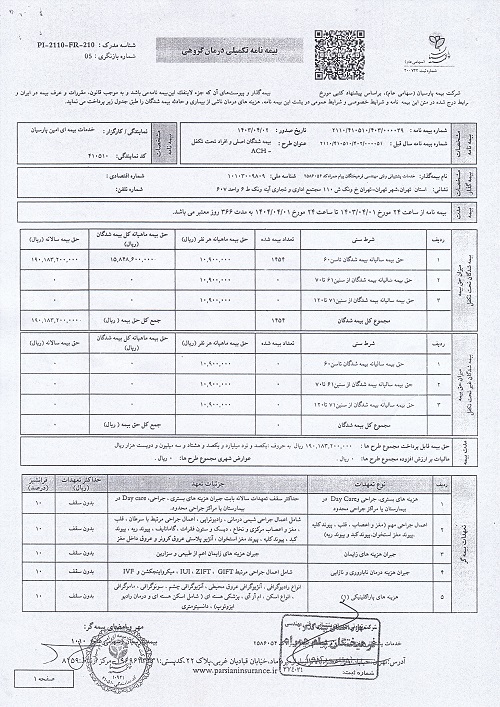 شناسه مدرک : PI-2110-FR-210
شماره بازنگری : 05
بیمه نامه تکمیلی درمان گروهی
شرکت بیمه پارسیان (سهامی عام)، براساس پیشنهاد کتبی مورخ
بیمه گذار و پیوست‌های آن که جزء لاینفک این بیمه نامه می‌باشد و به موجب قانون، مقررات و عرف بیمه در ایران و
شرایط درج شده در متن این بیمه نامه و شرایط خصوصی و شرایط عمومی در پشت این بیمه نامه، هزینه های درمان ناشی از بیماری و حادثه بیمه شدگان را طبق جدول زیر پرداخت می نماید.
شماره بیمه نامه : ۲۱۱۰/۴۱۰۵۱۰/۴۰۳/۰۰۰۰۳۹
تاریخ صدور : ۱۴۰۳/۰۴/۰۲
نمایندگی / کارگزار : خدمات بیمه ای امین پارسیان
شماره بیمه نامه سال قبل : ۲۱۱۰/۴۱۰۵۱۰/۴۰۲/۰۰۰۰۵۱
عنوان طرح : بیمه شدگان اصلی و افراد تحت تکفل - ACH
کد نمایندگی : ۴۱۰۵۱۰
بیمه‌گذار: خدمات پشتیبانی وفنی مهندسی فرهیختگان پیام همراه کد ۲۵۸۶۰۵۴
شناسه ملی: ۱۰۱۰۳۰۰۹۸۰۹
شماره اقتصادی :
نشانی: استان تهران،شهر تهران،تهران خ ونک ش ۱۱۰ مجتمع اداری و تجاری آینه ونک ط ۶ واحد ۶۰۷
شماره تلفن:
بیمه نامه از ساعت ۲۴ مورخ ۱۴۰۳/۰۴/۰۱ تا ساعت ۲۴ مورخ ۱۴۰۴/۰۴/۰۱ به مدت ۳۶۶ روز معتبر می باشد.
ردیف شرط سنی تعداد بیمه شده حق بیمه ماهیانه هر نفر (ریال) حق بیمه ماهیانه کل بیمه شدگان (ریال) حق بیمه سالانه (ریال)
۱ حق بیمه سالیانه بیمه شدگان تاسن۶۰ ۱۴۵۴ ۱۰,۹۰۰,۰۰۰ ۱۵,۸۴۸,۶۰۰,۰۰۰ ۱۹۰,۱۸۳,۲۰۰,۰۰۰
۲ حق بیمه سالیانه بیمه شدگان از سن۶۱ تا۷۰ ۰ ۱۰,۹۰۰,۰۰۰ ۰ ۰
۳ حق بیمه سالیانه بیمه شدگان از سن۷۱ تا۱۲۰ ۰ ۱۰,۹۰۰,۰۰۰ ۰ ۰
مجموع کل بیمه شدگان ۱۴۵۴ جمع کل حق بیمه ( ریال) ۱۹۰,۱۸۳,۲۰۰,۰۰۰
ردیف شرط سنی تعداد بیمه شده حق بیمه ماهیانه هر نفر (ریال) حق بیمه ماهیانه کل بیمه شدگان (ریال) حق بیمه سالانه (ریال)
۱ حق بیمه سالیانه بیمه شدگان تاسن۶۰ ۰ ۱۰,۹۰۰,۰۰۰ ۰ ۰
۲ حق بیمه سالیانه بیمه شدگان از سن۶۱ تا۷۰ ۰ ۱۰,۹۰۰,۰۰۰ ۰ ۰
۳ حق بیمه سالیانه بیمه شدگان از سن۷۱ تا۱۲۰ ۰ ۱۰,۹۰۰,۰۰۰ ۰ ۰
مجموع کل بیمه شدگان ۰ جمع کل حق بیمه ( ریال) ۰
حق بیمه قابل پرداخت مجموع طرح ها : ۱۹۰,۱۸۳,۲۰۰,۰۰۰ ریال به حروف :یکصد و نود میلیارد و یکصد و هشتاد و سه میلیون و دویست هزار ریال
مالیات بر ارزش افزوده مجموع طرح ها : ۰ ریال. عوارض شهری مجموع طرح ها: ۰ ریال.
ردیف نوع تعهدات جزئیات تعهد حداکثر تعهدات (ریال) فرانشیز (درصد)
۱ هزینه های بستری، جراحی وDay Care در بیمارستان یا مراکز جراحی محدود حداکثر سقف تعهدات سالانه بابت جبران هزینه های بستری ، جراحی، Day care در بیمارستان یا مراکز جراحی محدود. بدون سقف ۱۰
۲ اعمال جراحی مهم (مغز و اعصاب ، قلب ، پیوند کلیه ،پیوند مغز استخوان،پیوند کبد و پیوند ریه) شامل اعمال جراحی شیمی درمانی ، رادیوتراپی ، اعمال جراحی مرتبط با سرطان ، قلب ، مغز و اعصاب مرکزی و نخاع ، دیسک و ستون فقرات ، گامانایف ، پیوند ریه ، پیوند کبد، پیوند کلیه ، پیوند مغز استخوان ، آنژیو پلاستی عروق کرونر و عروق داخل مغز بدون سقف ۱۰
۳ جبران هزینه های زایمان جبران هزینه های زایمان اعم از طبیعی و سزارین بدون سقف ۱۰
۴ جبران هزینه درمان ناباروری و نازایی شامل اعمال جراحی مرتبط IUI ، ZIFT ، GIFT ، میکرواینجکشن و IVF بدون سقف ۱۰
۵ هزینه های پاراکلینیکی (۱) انواع رادیوگرافی ، آنژیوگرافی عروق محیطی ، آنژیوگرافی چشم ، سونوگرافی ، ماموگرافی ، انواع اسکن ، ام آر آی ، پزشکی هسته ای ( شامل اسکن هسته ای و درمان رادیو ایزوتوپ) ، دانسیتومتری بدون سقف ۱۰
مهر وامضای بیمه گر:
فرهیختگان پیام همراه
www.parsianinsurance.ir
شماره ثبت:
صفحه ۱